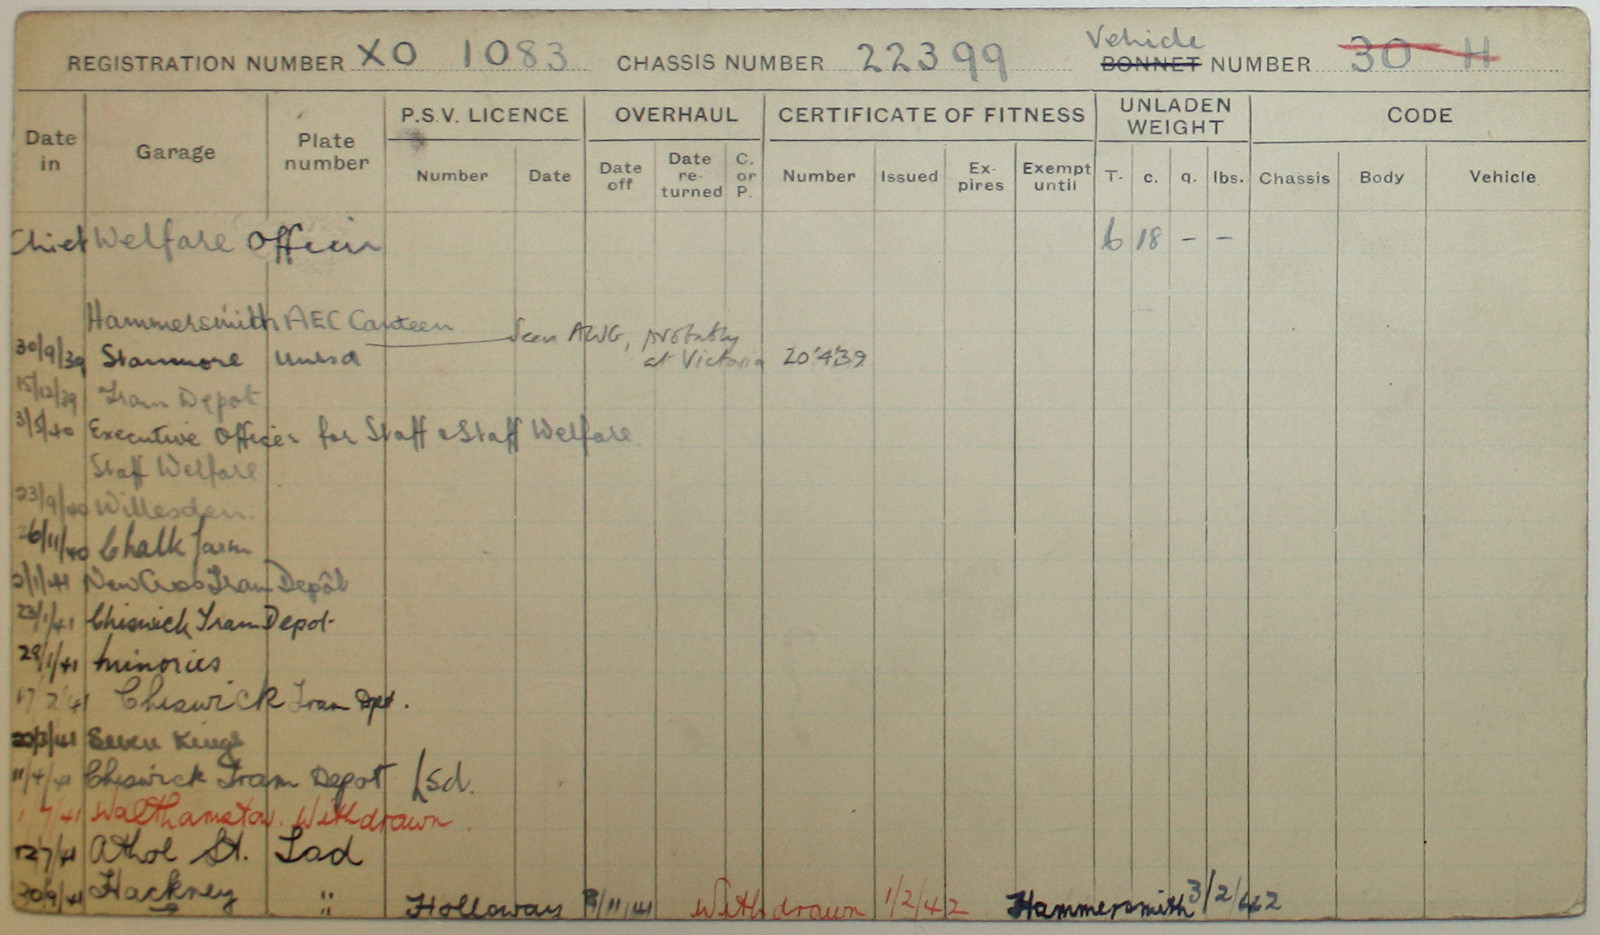 REGISTRATION NUMBER XO 1083 CHASSIS NUMBER 22399 Vehicle BONNET NUMBER 30 H
Date in Garage Plate number P.S.V. LICENCE OVERHAUL CERTIFICATE OF FITNESS UNLADEN WEIGHT CODE
Number Date Date off Date re-turned C. or P. Number Issued Ex-pires Exempt until T. c. q. lbs. Chassis Body Vehicle
Chief Welfare Officer 6 18 - -
Hammersmith AEC Canteen
Seen AWG, probably
30/9/39 Stanmore at Victoria 20.4.39
15/12/39 Tram Depot
3/5/40 Executive Officer for Staff & Staff Welfare.
Staff Welfare
23/9/40 Willesden.
26/11/40 Chalk Farm
2/1/41 New Cross Tram Depôt
23/1/41 Chiswick Tram Depot
29/1/41 Minories
17/2/41 Chiswick Tram Dpt.
20/3/41 Seven Kings
11/4/41 Chiswick Tram Depot Lsd.
1/7/41 Walthamstow. Withdrawn
12/7/41 Athol St. Lsd
20/9/41 Hackney " Holloway 8/11/41 Withdrawn 1/2/42 Hammersmith 3/2/42